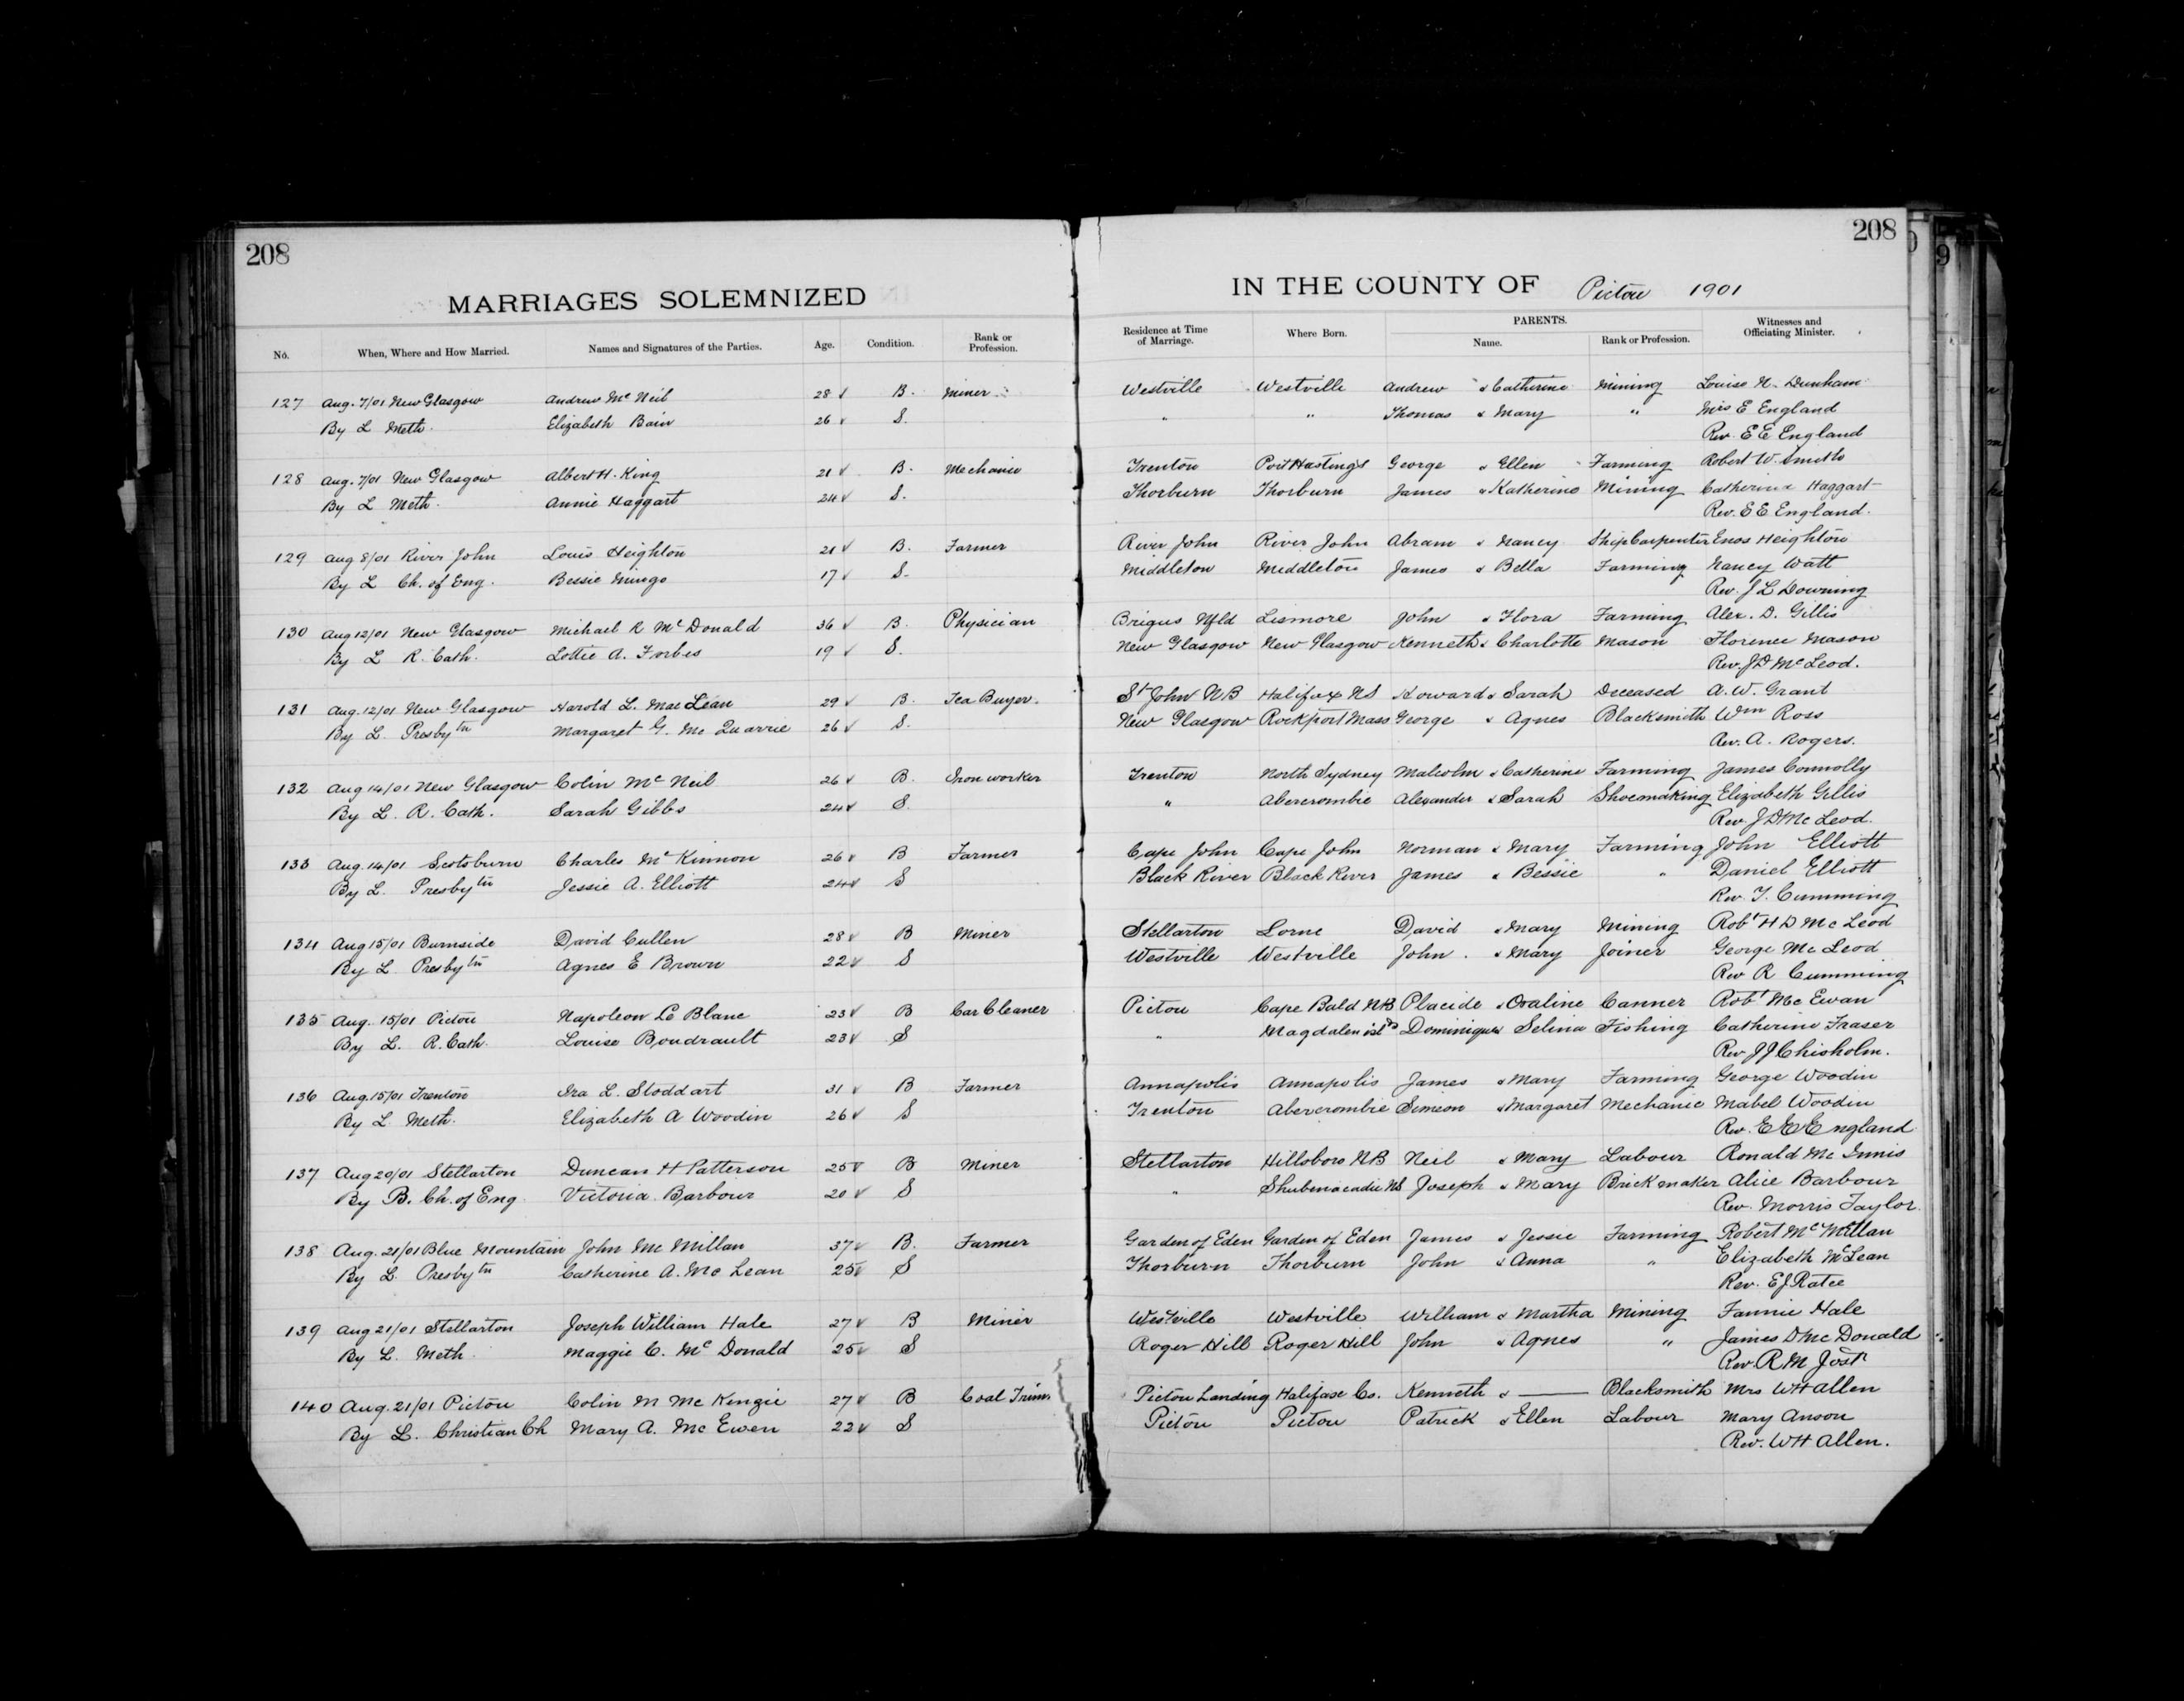 208
208
MARRIAGES SOLEMNIZED
IN THE COUNTY OF Pictou 1901
No. When, Where and How Married. Names and Signatures of the Parties. Age. Condition. Rank or Profession. Residence at Time of Marriage. Where Born. PARENTS. Name. Rank or Profession. Witnesses and Officiating Minister.
127 Aug. 7/01 New Glasgow Andrew Mc Neil 28 B. Miner Westville Westville Andrew & Catherine Mining Louise N. Dunham
By L Meth. Elizabeth Bain 26 S. " " Thomas & Mary " Mrs E England
Rev. E E England
128 Aug. 7/01 New Glasgow Albert H. King 21 B. Mechanic Trenton Port Hastings George & Ellen Farming Robert W. Smith
By L Meth. Annie Haggart 24 S. Thorburn Thorburn James & Katherine Mining Catherine Haggart
Rev. E E England.
129 Aug 8/01 River John Louis Heighton 21 B. Farmer River John River John Abram & Nancy Ship Carpenter Enos Heighton
By L Ch. of Eng. Bessie Mingo 17 S. Middleton Middleton James & Bella Farming Nancy Watt
Rev. J L Downing
130 Aug 12/01 New Glasgow Michael R McDonald 36 B. Physician Brigus Nfld Lismore John & Flora Farming Alex. D. Gillis
By L R. Cath. Lottie A. Forbes 19 S. New Glasgow New Glasgow Kenneth & Charlotte Mason Florence Mason
Rev. J D McLeod.
131 Aug. 12/01 New Glasgow Harold L. MacLean 29 B. Tea Buyer. St John NB Halifax NS Howard & Sarah Deceased A. W. Grant
By L. Presbytn Margaret G. Mc Quarrie 26 S. New Glasgow Rockport Mass George & Agnes Blacksmith Wm Ross
Rev. A. Rogers.
132 Aug 14/01 New Glasgow Colin Mc Neil 26 B. Iron worker Trenton North Sydney Malcolm & Catherine Farming James Connolly
By L. R. Cath. Sarah Gibbs 24 S " Abercrombie Alexander & Sarah Shoemaking Elizabeth Gillis
Rev J D McLeod.
133 Aug. 14/01 Scotsburn Charles McKinnon 26 B Farmer Cape John Cape John Norman & Mary Farming John Elliott
By L. Presbytn Jessie A. Elliott 24 S Black River Black River James & Bessie " Daniel Elliott
Rev. T. Cumming
134 Aug 15/01 Burnside David Cullen 28 B Miner Stellarton Lorne David & Mary Mining Robt H D McLeod
By L Presbytn Agnes E Brown 22 S Westville Westville John & Mary Joiner George McLeod
Rev R Cumming
135 Aug. 15/01 Pictou Napoleon Le Blanc 23 B Car Cleaner Pictou Cape Bald NB Placide & Ozaline Canner Robt McEwan
By L. R. Cath. Louise Boudrault 23 S " Magdalen islds Dominique & Selina Fishing Catherine Fraser
Rev. J J Chisholm.
136 Aug. 15/01 Trenton Ira L. Stoddart 31 B Farmer Annapolis Annapolis James & Mary Farming George Woodin
By L. Meth. Elizabeth A Woodin 26 S Trenton Abercrombie Simeon & Margaret Mechanic Mabel Woodin
Rev. E E England
137 Aug 20/01 Stellarton Duncan H Patterson 25 B Miner Stellarton Hillsboro NB Neil & Mary Labour Ronald McInnis
By B. Ch. of Eng. Victoria Barbour 20 S " Shubenacadie NS Joseph & Mary Brickmaker Alice Barbour
Rev. Morris Taylor.
138 Aug. 21/01 Blue Mountain John McMillan 37 B. Farmer Garden of Eden Garden of Eden James & Jessie Farming Robert McMillan
By L. Presbytn Catherine A. McLean 25 S Thorburn Thorburn John & Anna " Elizabeth McLean
Rev. E J Ratee
139 Aug 21/01 Stellarton Joseph William Hale 27 B Miner Westville Westville William & Martha Mining Fannie Hale
By L. Meth. Maggie C. McDonald 25 S Roger Hill Roger Hill John & Agnes " James D McDonald
Rev. R M Jost
140 Aug. 21/01 Pictou Colin M McKenzie 27 B Coal Trim. Pictou Landing Halifax Co. Kenneth & — Blacksmith Mrs W H Allen
By L. Christian Ch Mary A. McEwen 22 S Pictou Pictou Patrick & Ellen Labour Mary Anson
Rev. W H Allen.